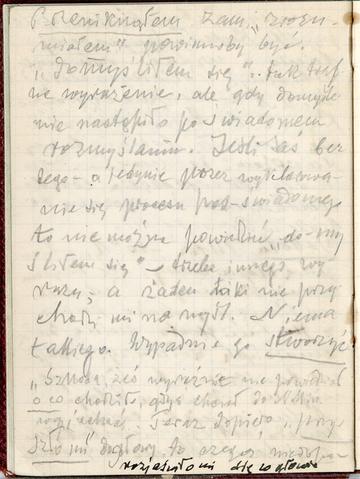 Przeniknąłem zam. „zrozu-
miałem" powinno by być.
„Domyśliłem się".. tak
ne wyrażenie, ale gdy domysł
nie nastąpiło po świadomem
rozmyślaniu. Jeśli zaś bez
tego - a jedynie przez
nie się procesu pod-świadomego
to nie można powiedzieć „do-my
śliłem się" - trzeba innego wy
razu, a żaden taki nie przy
chodzi mi na myśl. Niema
takiego. Wypadnie go stworzyć
„Szkoda, żeś wyraźnie nie powiedział
o co chodziło, gdyś chciał
teraz dopiero „przy
szło mi do głowy, to czegoś
rozjaśniło mi się w głowie